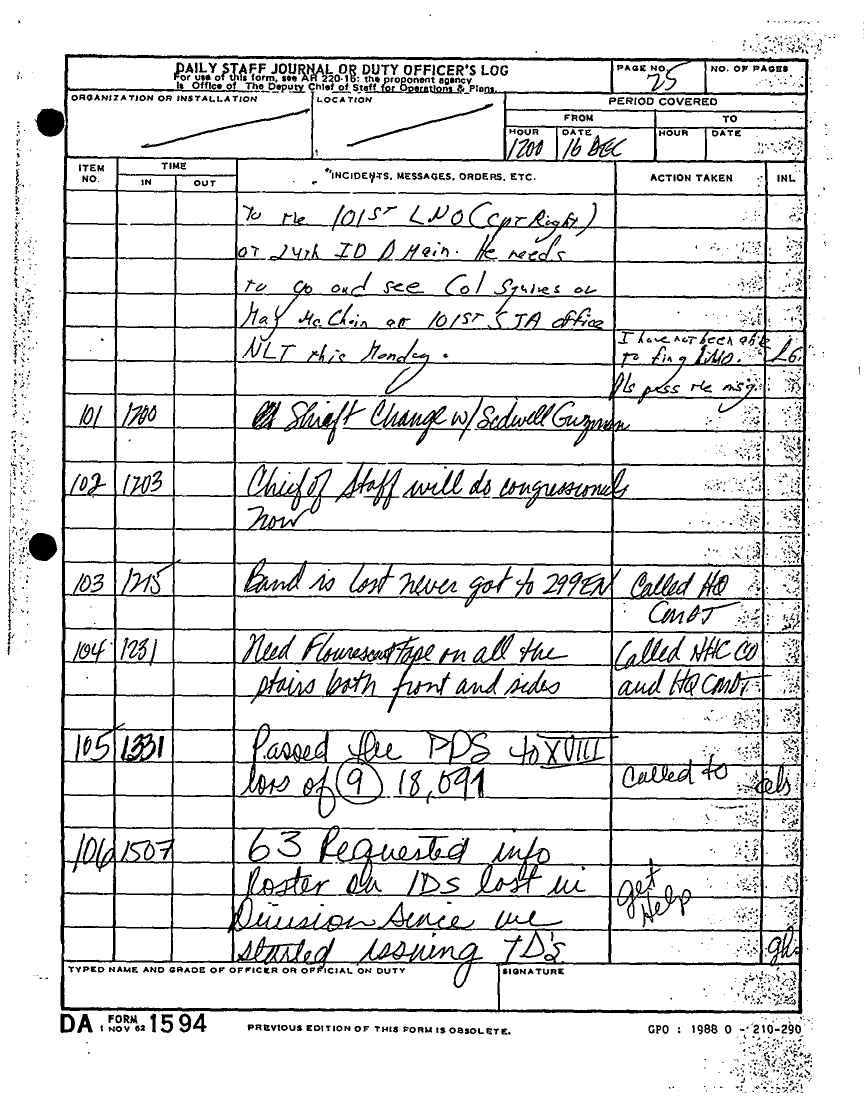 DAILY STAFF JOURNAL OR DUTY OFFICER'S LOG
For use of this form, see AR 220-15; the proponent agency
is Office of The Deputy Chief of Staff for Operations & Plans.
PAGE NO.
25
NO. OF PAGES
ORGANIZATION OR INSTALLATION
LOCATION
PERIOD COVERED
FROM
TO
HOUR
DATE
HOUR
DATE
1200
16 DEC
ITEM NO.
TIME
IN
OUT
INCIDENTS, MESSAGES, ORDERS, ETC.
ACTION TAKEN
INL
To the 101ST LNO (Cpt Right)
at 24th ID D Main. He needs
to go and see Col Squires or
Maj McChain at 101ST SJA office
NLT this Monday.
I have not been able
to fing LNO.
Pls pass the msg.
LG.
101 1200 Shift Change w/ Sedwell Guzman
102 1203 Chief of Staff will do congressionals
now
103 1215 Band is lost never got to 299EN Called HQ
CMDT
104 1231 Need Flourescent tape on all the Called HHC CO
stairs both front and sides and HQ CMDT
105 1331 Passed the PDS to XVIII
Cors of 9 18,091 Called to
106 1507 G3 Requested info
Roster on IDs lost in get
Division since we Help
started issuing ID's
TYPED NAME AND GRADE OF OFFICER OR OFFICIAL ON DUTY
SIGNATURE
DA FORM 1 NOV 62 1594
PREVIOUS EDITION OF THIS FORM IS OBSOLETE.
GPO : 1988 O - 210-290